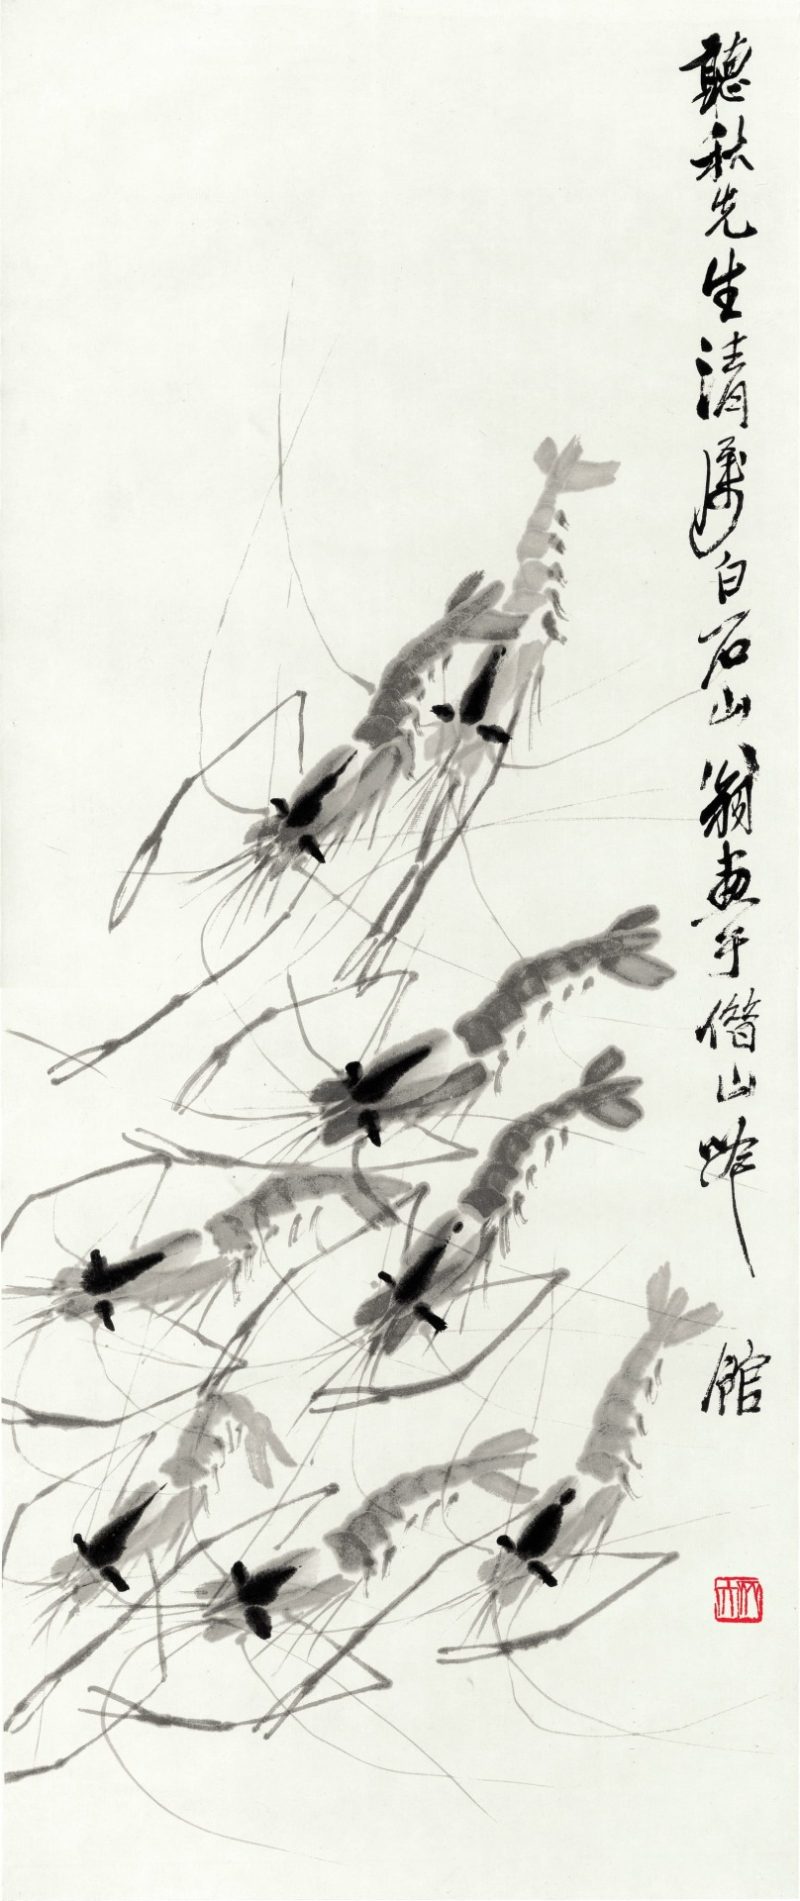 聽秋先生清屬白石山翁畫于借山吟
館
木人